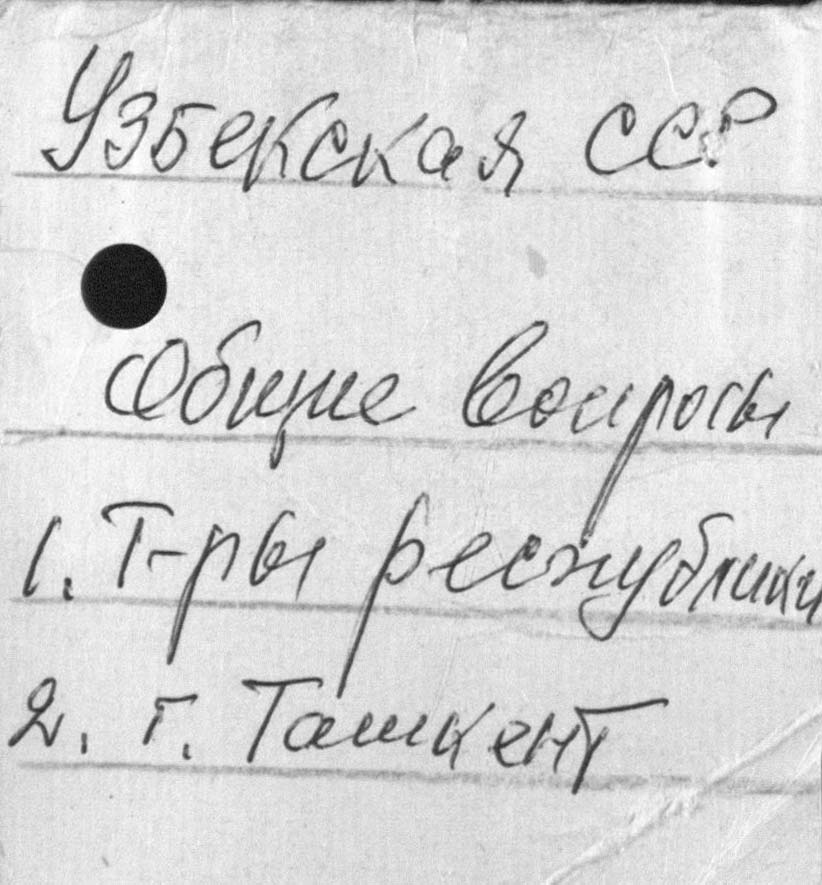 Узбекская ССР
Общие вопросы
1. Т-ры республики
2. г. Ташкент